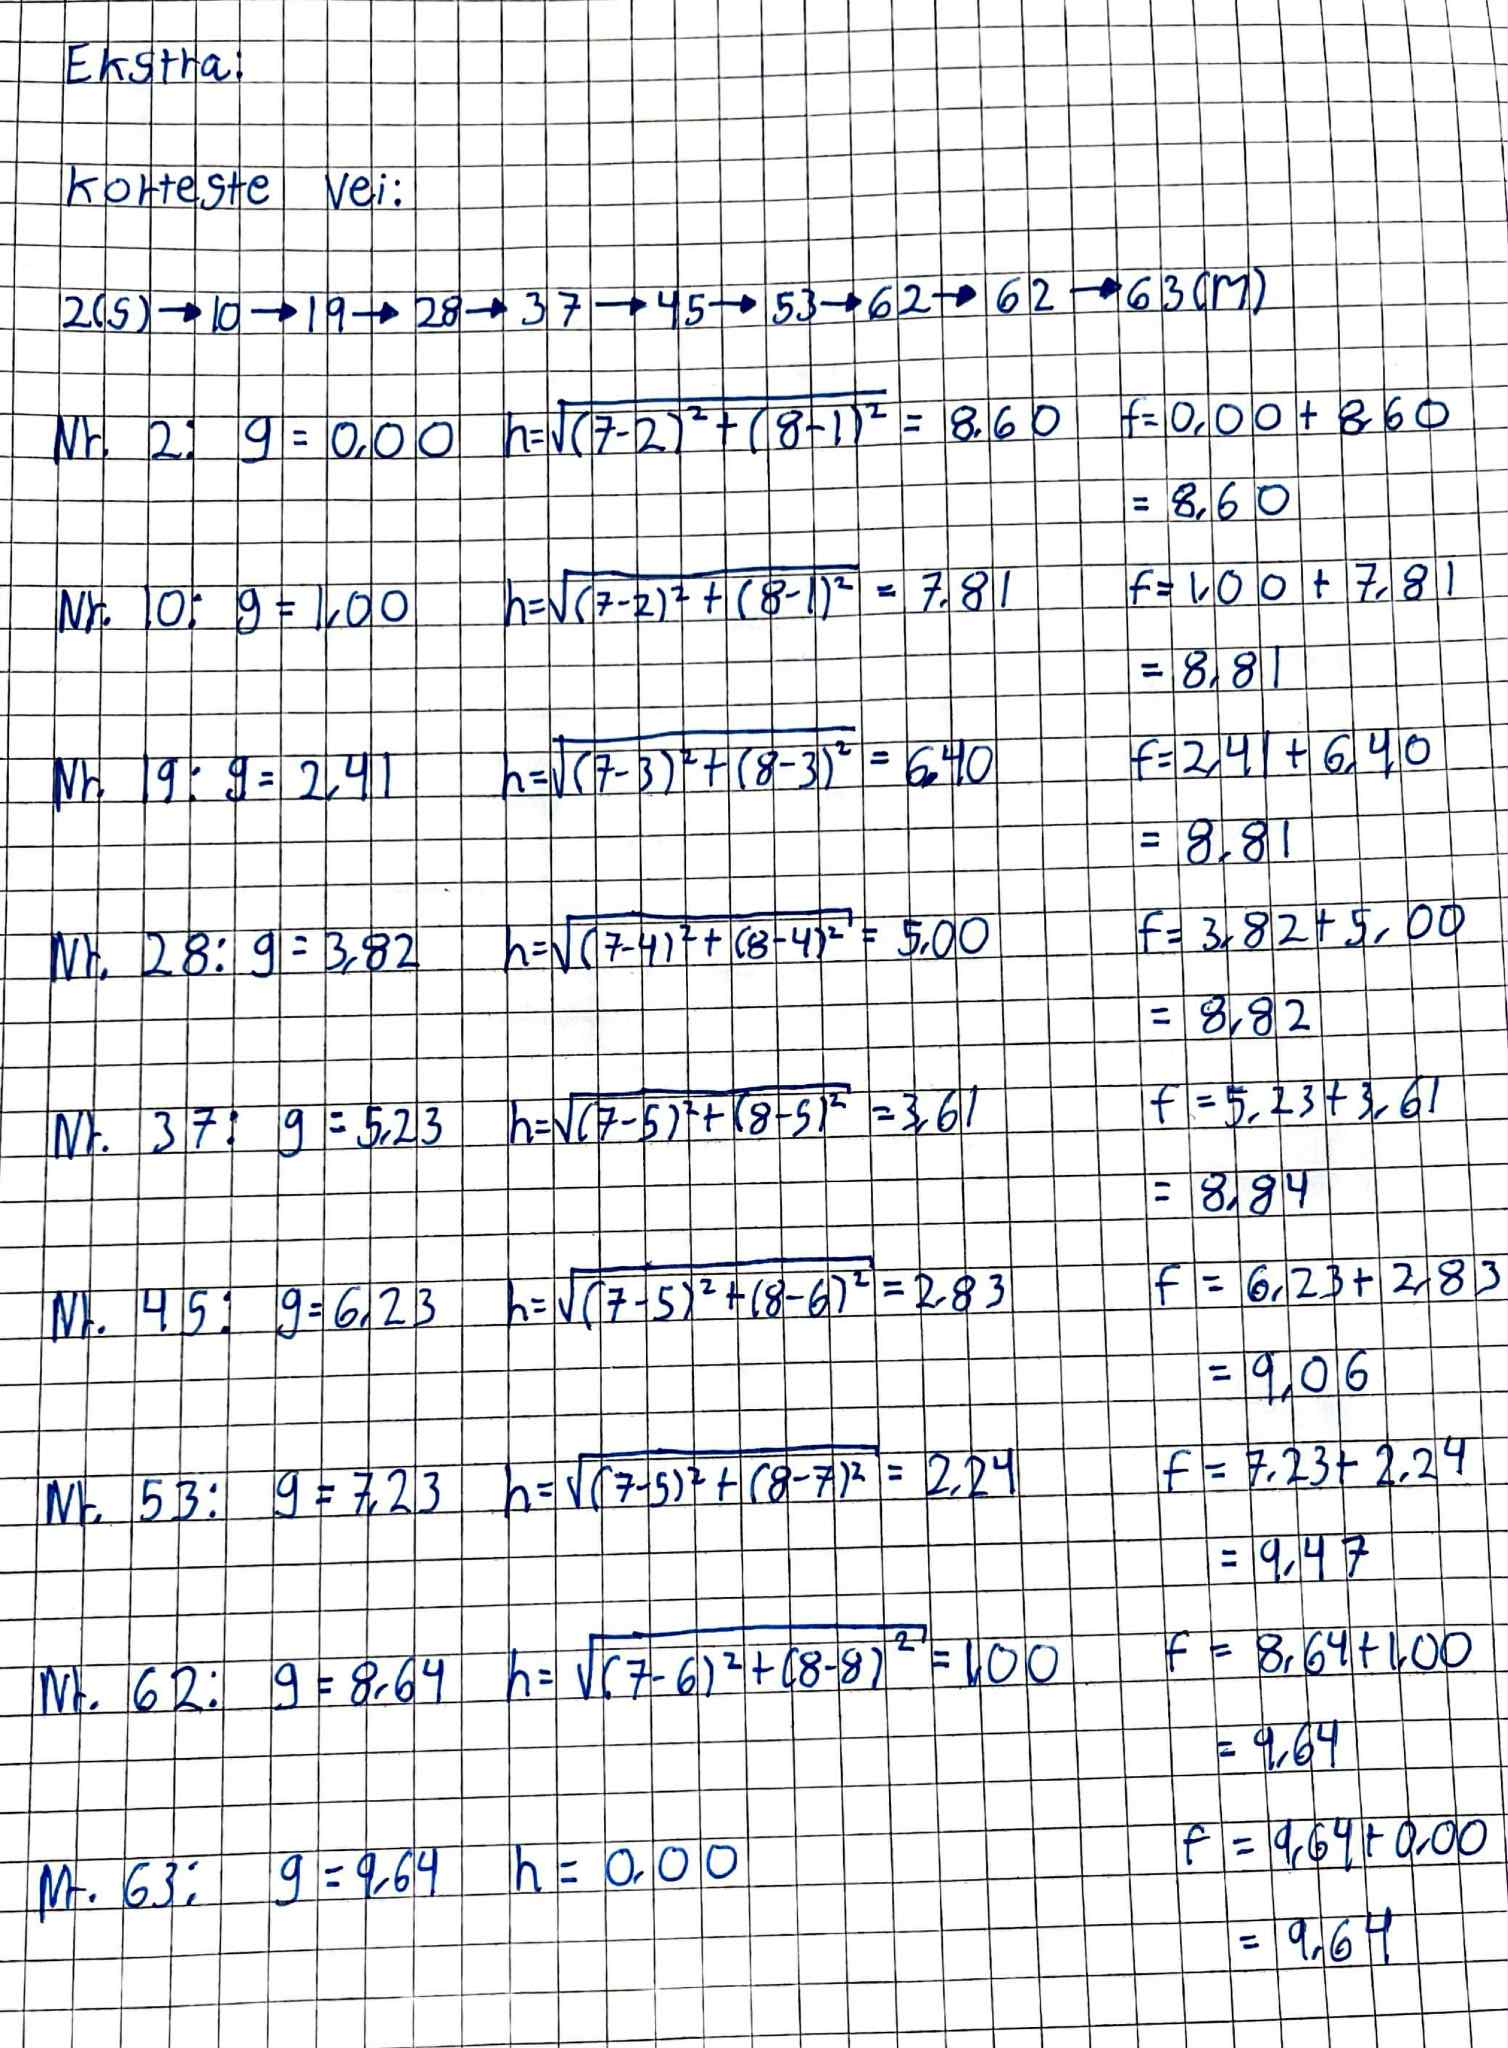 Ekstra:
Korteste vei:
2(S) → 10 → 19 → 28 → 37 → 45 → 53 → 62 → 62 → 63(M)
Nr. 2: g = 0,00 h=√((7-2)²+(8-1)²) = 8,60 f=0,00+8,60
= 8,60
Nr. 10: g = 1,00 h=√((7-2)²+(8-1)²) = 7,81 f=1,00+7,81
= 8,81
Nr. 19: g = 2,41 h=√((7-3)²+(8-3)²) = 6,40 f=2,41+6,40
= 8,81
Nr. 28: g = 3,82 h=√((7-4)²+(8-4)²) = 5,00 f=3,82+5,00
= 8,82
Nr. 37: g = 5,23 h=√((7-5)²+(8-5)²) = 3,61 f=5,23+3,61
= 8,84
Nr. 45: g=6,23 h=√((7-5)²+(8-6)²) = 2,83 f = 6,23+2,83
= 9,06
Nr. 53: g = 7,23 h=√((7-5)²+(8-7)²) = 2,24 f = 7,23+2,24
= 9,47
Nr. 62: g = 8,64 h= √((7-6)²+(8-8)²) = 1,00 f = 8,64+1,00
= 9,64
Nr. 63: g = 9,64 h = 0,00 f = 9,64+0,00
= 9,64